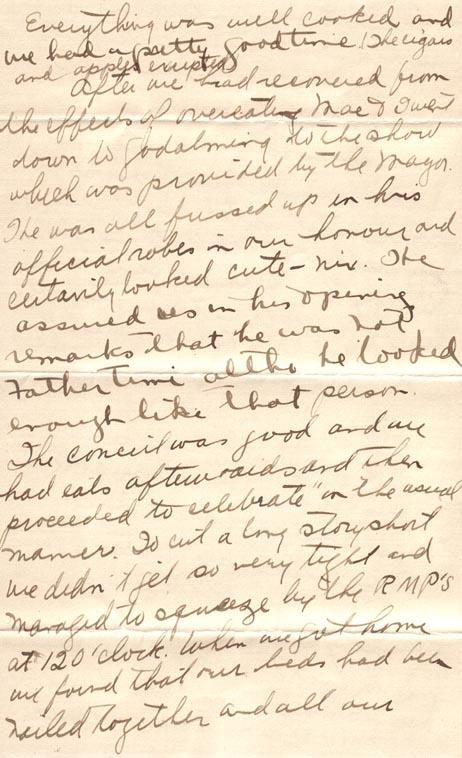 Everything was well cooked and
we had a pretty good time (The cigars
and apples erupted)
After we had recovered from
the effects of overeating Mac & I went
down to Godalming to the show
which was provided by the Mayor.
He was all fussed up in his
official robes in our honour and
certainly looked cute - nix. He
assured us in his opening
remarks that he was not
Father time altho he looked
enough like that person.
The concert was good and we
had eats afterwards and then
proceeded to celebrate "in the usual
manner. To cut a long story short
we didn't get so very tight and
managed to squeeze by the RMP's
at 12 O'clock. When we got home
we found that our beds had been
nailed together and all our